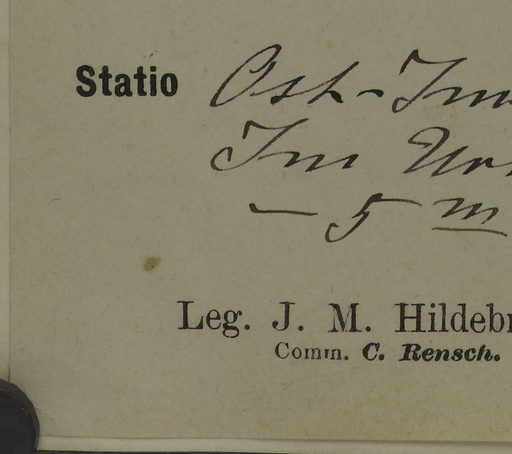 Statio Ost-Im
Im Ur
– 5 m
Leg. J. M. Hildeb
Comm. C. Rensch.